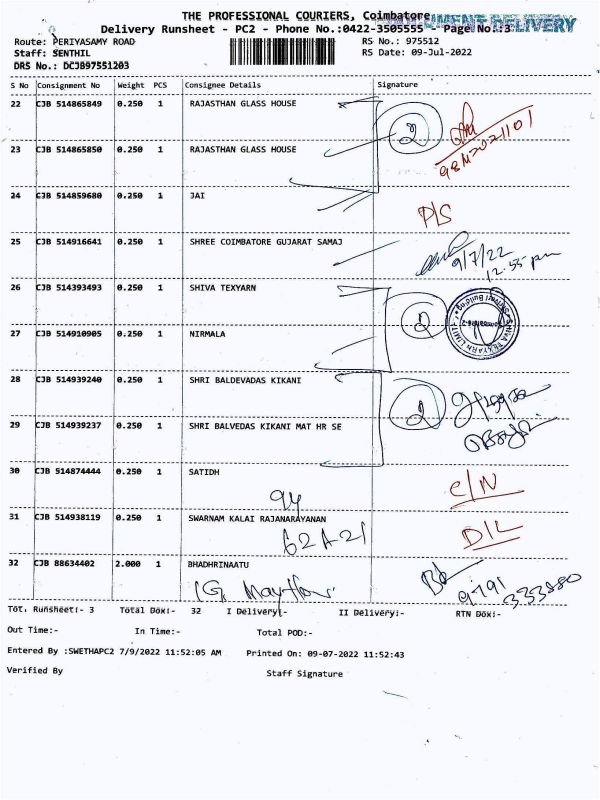 THE PROFESSIONAL COURIERS, Coimbatore
DOCUMENT DELIVERY
Delivery Runsheet - PC2 - Phone No.:0422-3505555 - Page No.:3
Route: PERIYASAMY ROAD RS No.: 975512
Staff: SENTHIL RS Date: 09-Jul-2022
DRS No.: DCJB97551203
S No Consignment No Weight PCS Consignee Details Signature
22 CJB 514865849 0.250 1 RAJASTHAN GLASS HOUSE
2
23 CJB 514865850 0.250 1 RAJASTHAN GLASS HOUSE
24 CJB 514859680 0.250 1 JAI
P/S
25 CJB 514916641 0.250 1 SHREE COIMBATORE GUJARAT SAMAJ
9/7/22
12.55 pm
26 CJB 514393493 0.250 1 SHIVA TEXYARN
2
27 CJB 514910905 0.250 1 NIRMALA
28 CJB 514939240 0.250 1 SHRI BALDEVADAS KIKANI
2
29 CJB 514939237 0.250 1 SHRI BALVEDAS KIKANI MAT HR SE
30 CJB 514874444 0.250 1 SATIDH
C/N
94
31 CJB 514938119 0.250 1 SWARNAM KALAI RAJANARAYANAN
D/L
62A-21
32 CJB 88634402 2.000 1 BHADHRINAATU
333880
Tot. Runsheet:- 3 Total Dox:- 32 I Delivery:- II Delivery:- RTN Dox:-
Out Time:- In Time:- Total POD:-
Entered By :SWETHAPC2 7/9/2022 11:52:05 AM Printed On: 09-07-2022 11:52:43
Verified By Staff Signature